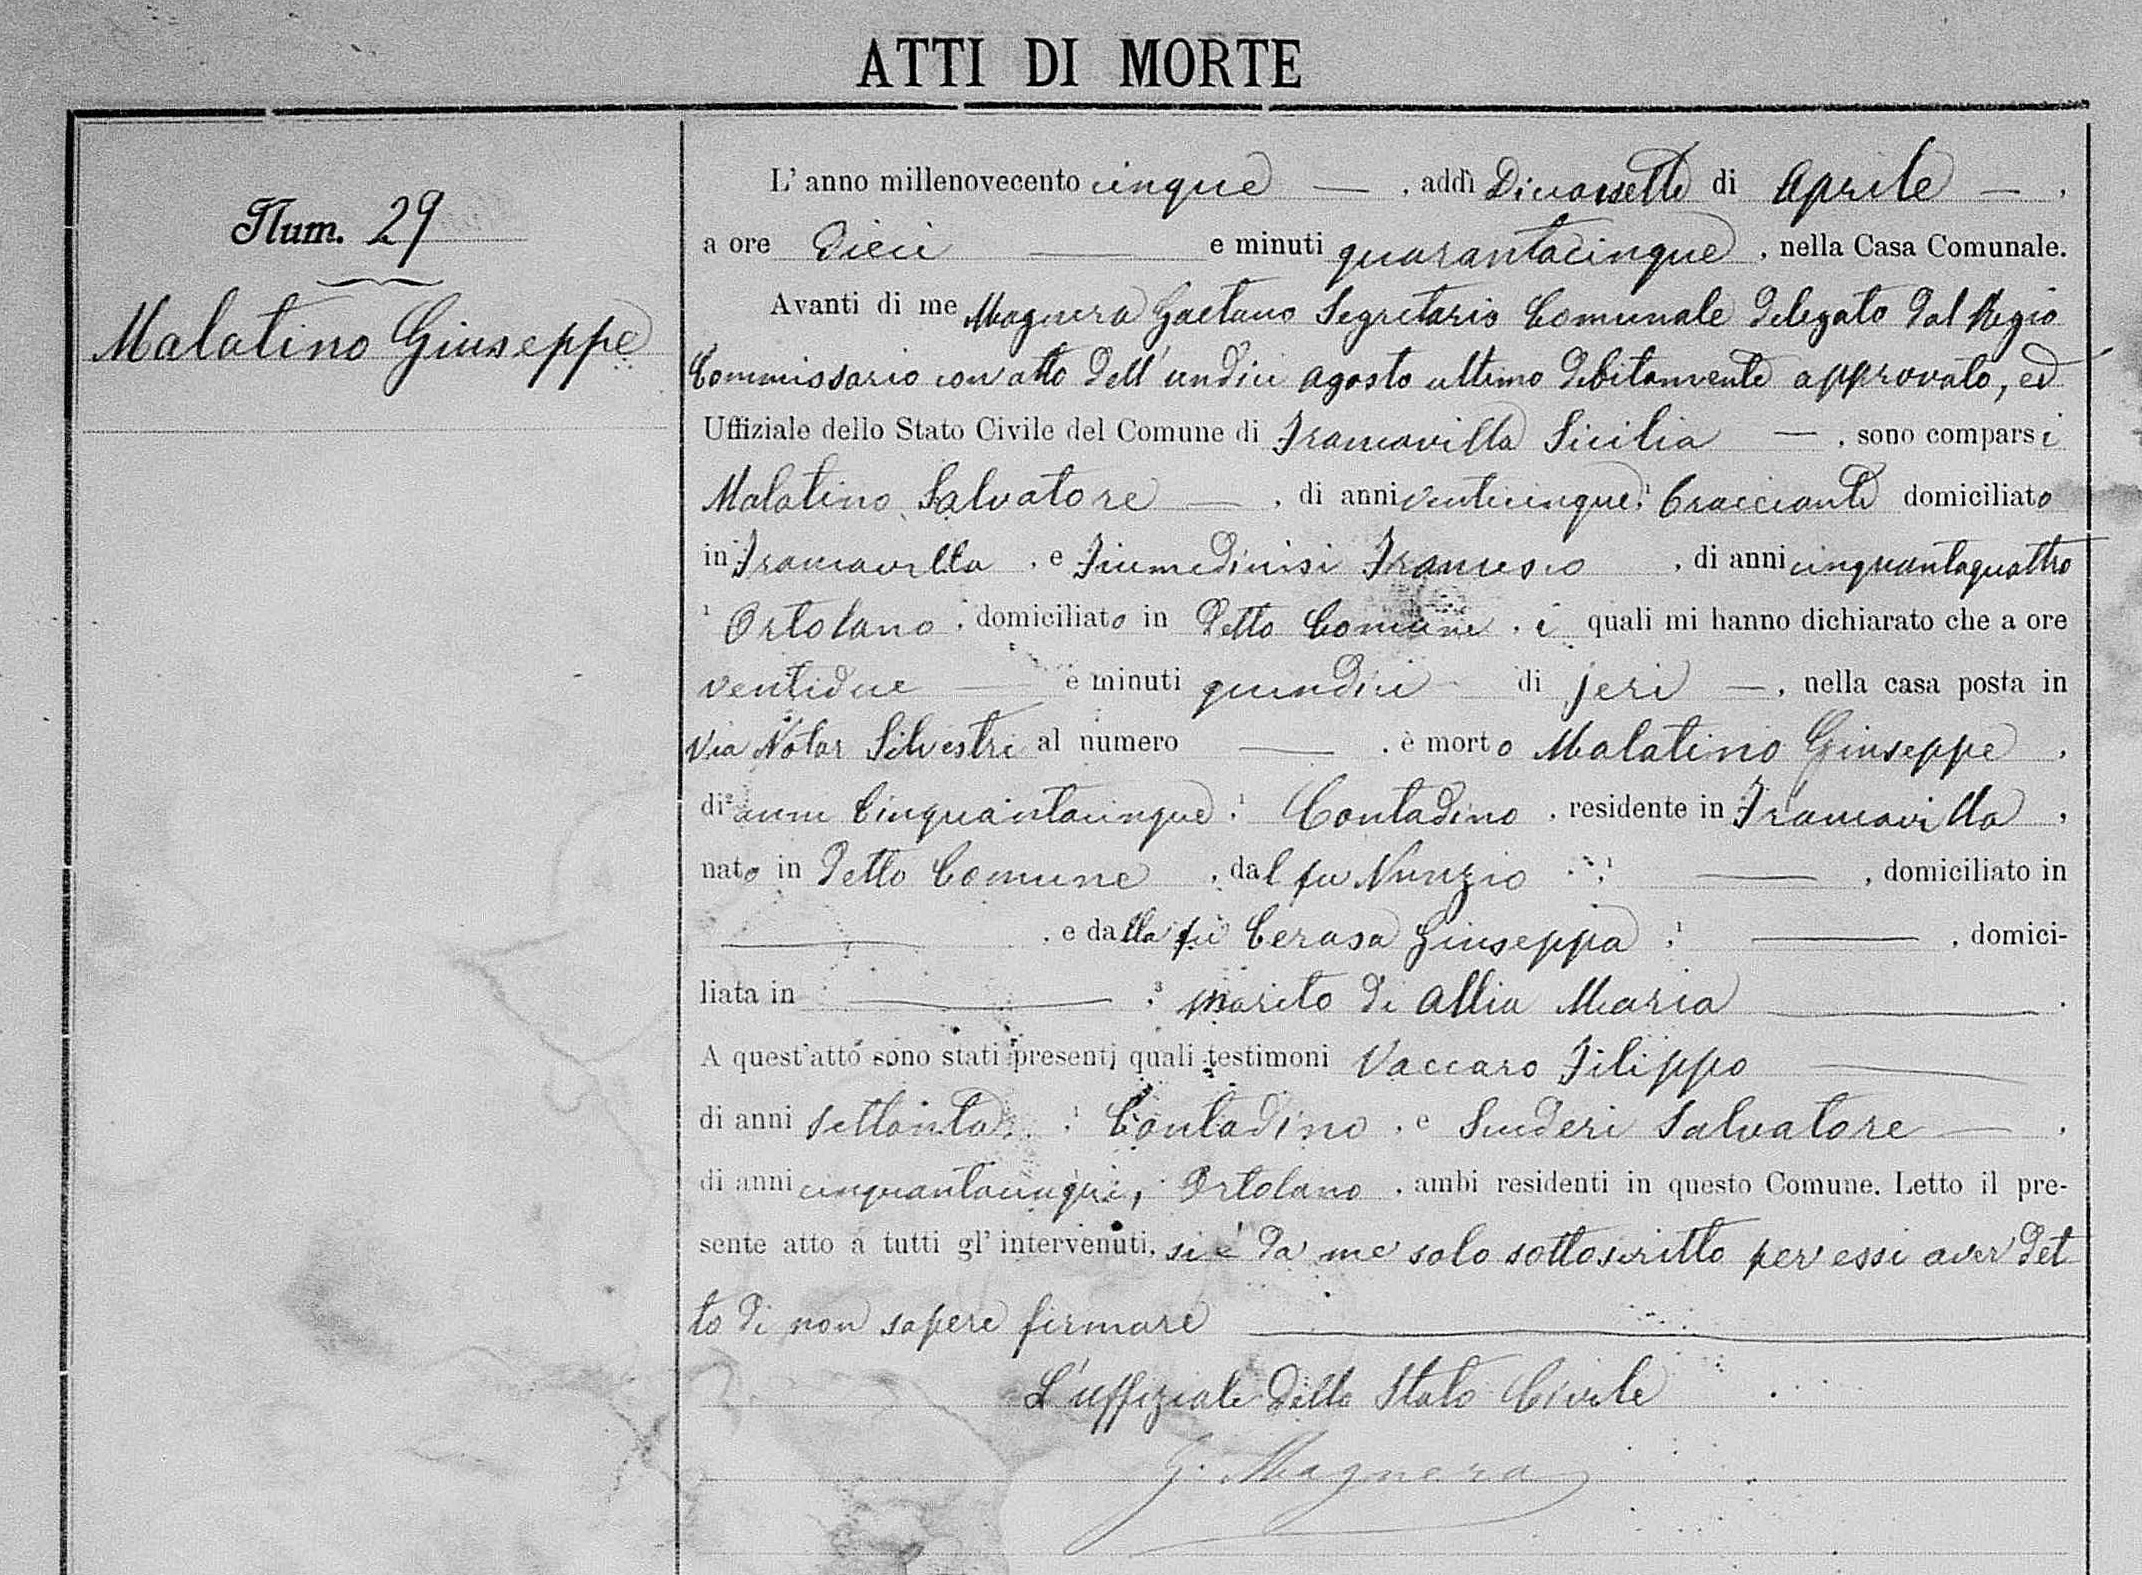 ATTI DI MORTE
Num. 29
Malatino Giuseppe
L'anno millenovecento cinque — , addì Diciassette di Aprile — ,
a ore Dieci — e minuti quarantacinque , nella Casa Comunale.
Avanti di me Magnera Gaetano Segretario Comunale delegato dal Regio
Commissario con atto dell'undici agosto ultimo debitamente approvato, ed
Uffiziale dello Stato Civile del Comune di Francavilla Sicilia — , sono comparsi
Malatino Salvatore — , di anni venticinque, ¹ bracciante domiciliato
in Francavilla , e Fiumedinisi Francesco , di anni cinquantaquattro
¹ Ortolano , domiciliato in detto Comune , i quali mi hanno dichiarato che a ore
ventidue — e minuti quindici di jeri — , nella casa posta in
Via Notar Silvestri al numero — , è morto Malatino Giuseppe ,
di ² anni Cinquantacinque , ¹ Contadino , residente in Francavilla ,
nato in detto Comune , dal fu Nunzio , ¹ — , domiciliato in
— , e dalla fu Cerasa Giuseppa , ¹ — , domici-
liata in — , ³ marito di Allia Maria — .
A quest'atto sono stati presenti quali testimoni Vaccaro Filippo —
di anni settanta , ¹ Contadino , e Scuderi Salvatore — ,
di anni cinquantacinque, Ortolano , ambi residenti in questo Comune. Letto il pre-
sente atto a tutti gl'intervenuti, si è da me solo sottoscritto per essi aver det
to di non sapere firmare —
L'uffiziale dello Stato Civile
G. Magnera